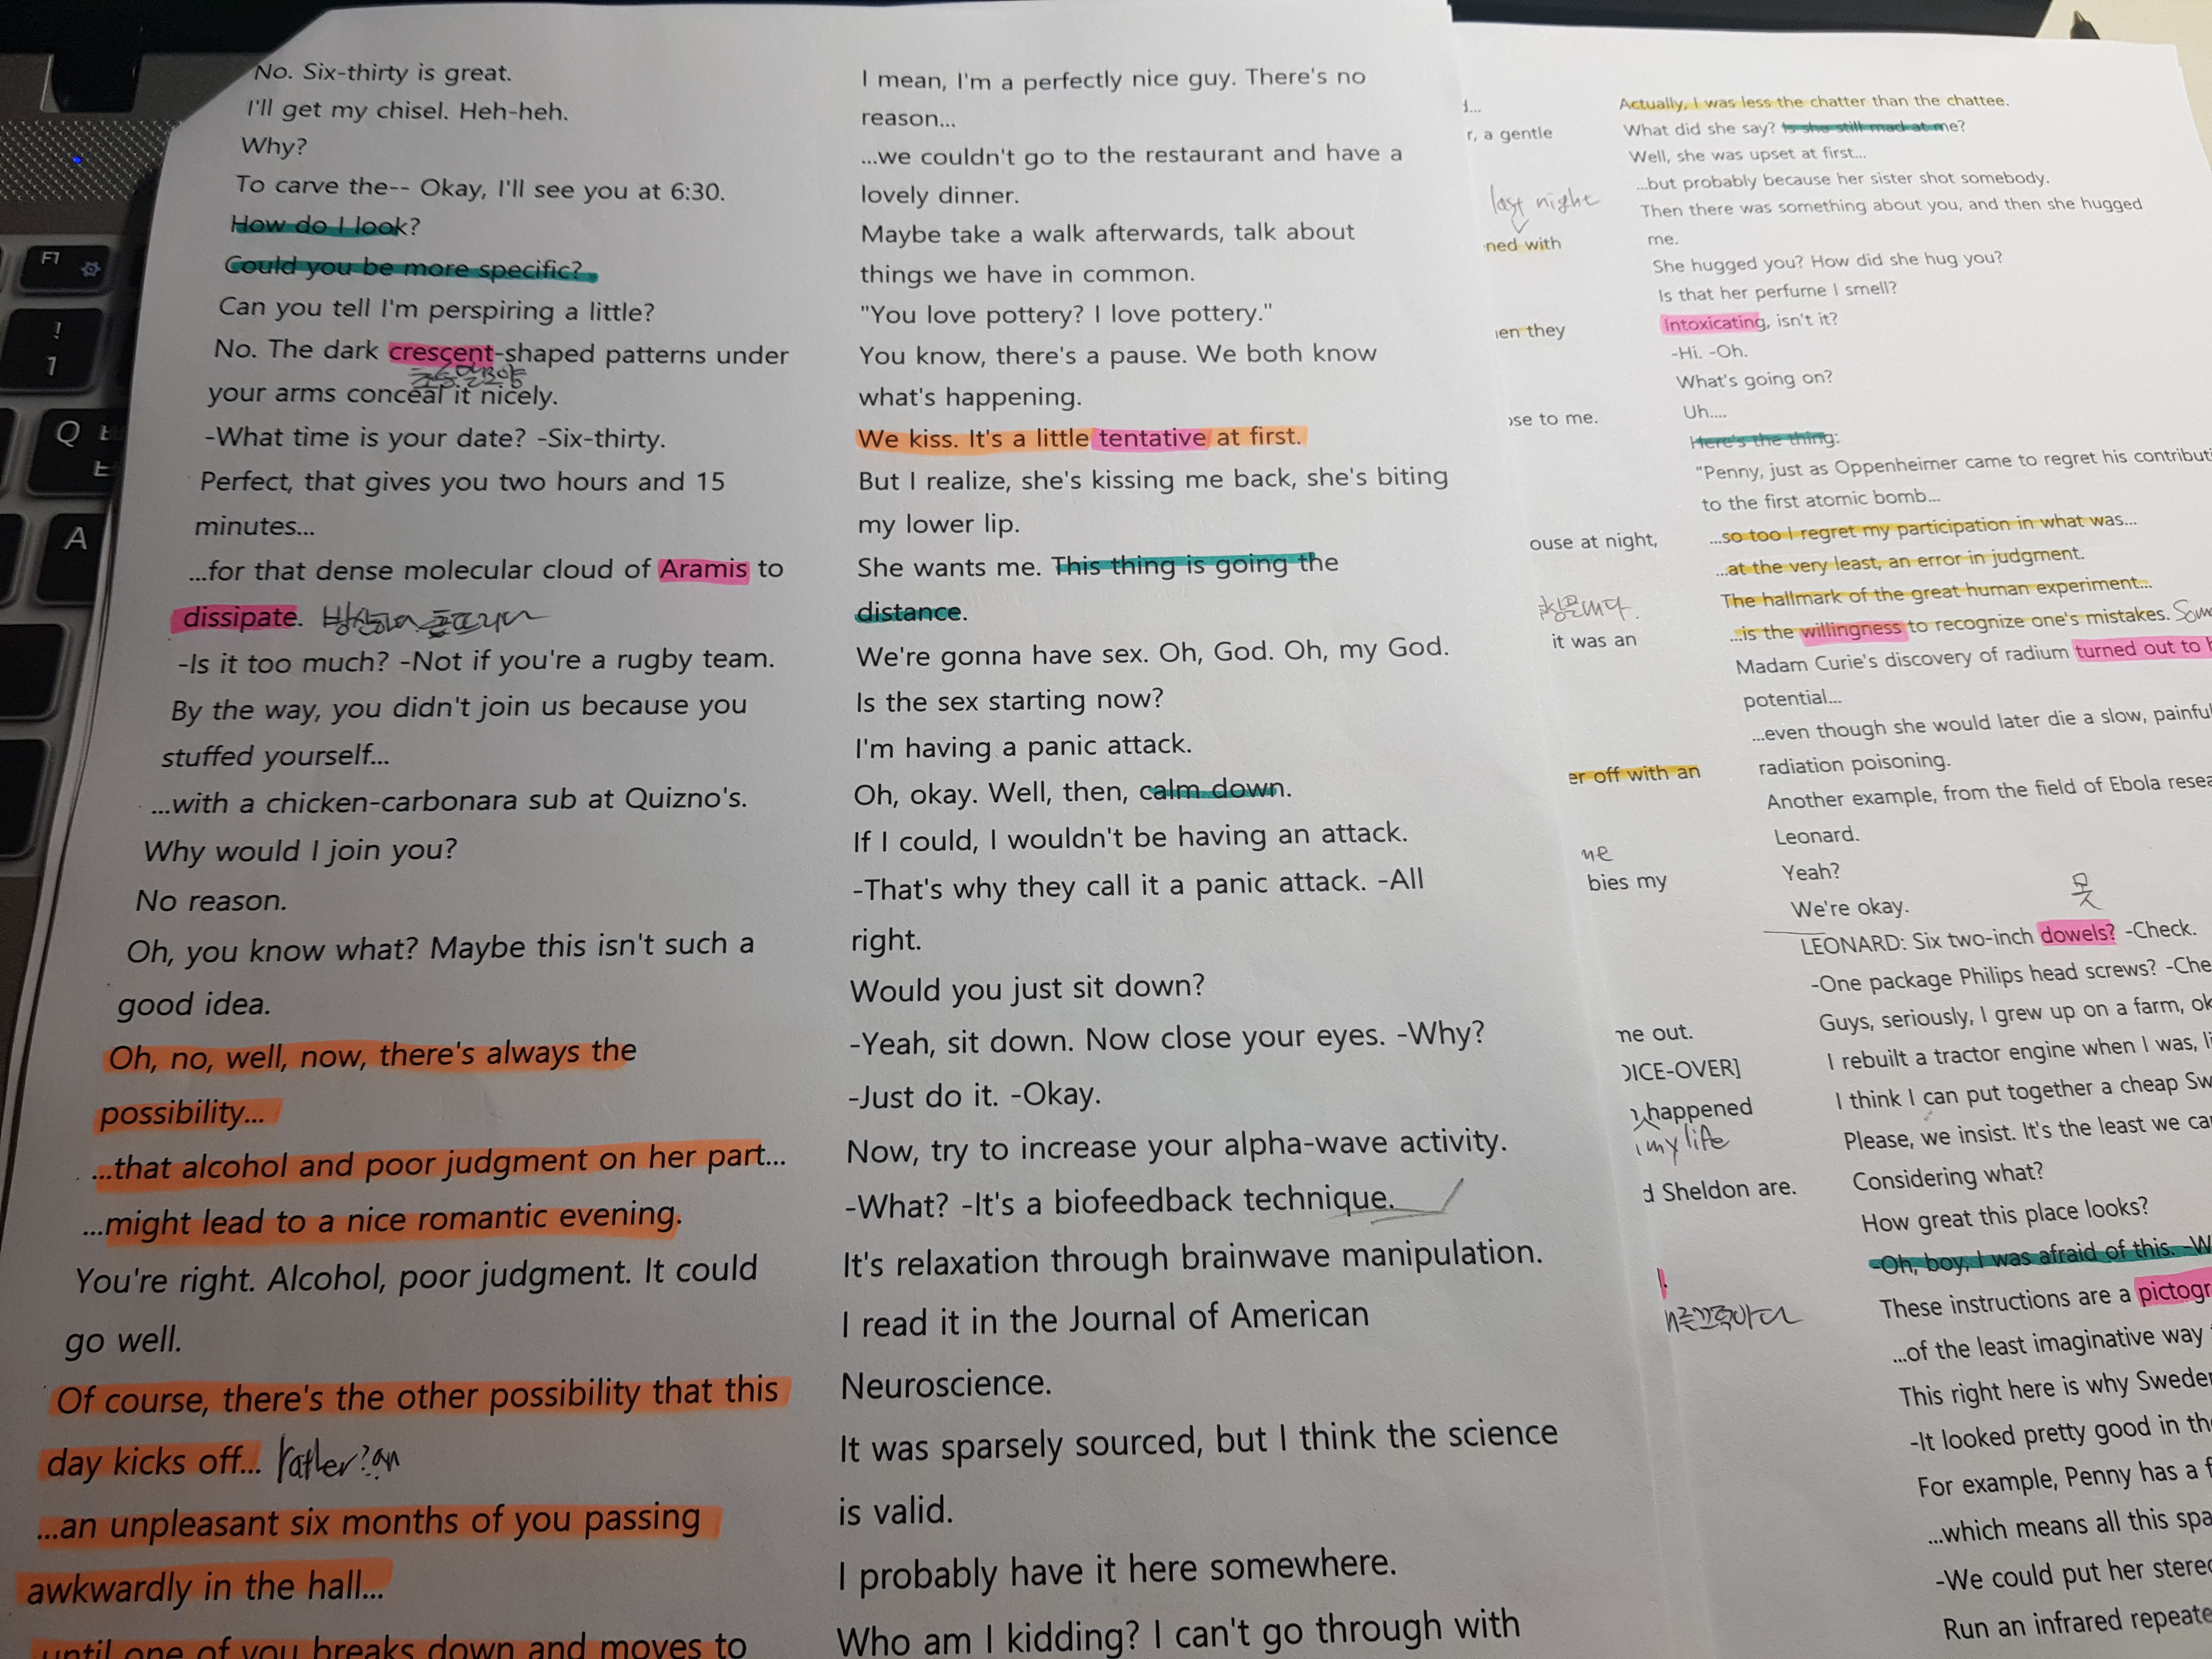 No. Six-thirty is great.
I'll get my chisel. Heh-heh.
Why?
To carve the-- Okay, I'll see you at 6:30.
How do I look?
Could you be more specific?
Can you tell I'm perspiring a little?
No. The dark crescent-shaped patterns under
초승달모양
your arms conceal it nicely.
-What time is your date? -Six-thirty.
Perfect, that gives you two hours and 15
minutes...
...for that dense molecular cloud of Aramis to
dissipate.
-Is it too much? -Not if you're a rugby team.
By the way, you didn't join us because you
stuffed yourself...
...with a chicken-carbonara sub at Quizno's.
Why would I join you?
No reason.
Oh, you know what? Maybe this isn't such a
good idea.
Oh, no, well, now, there's always the
possibility...
...that alcohol and poor judgment on her part...
...might lead to a nice romantic evening.
You're right. Alcohol, poor judgment. It could
go well.
Of course, there's the other possibility that this
day kicks off... rather?an
...an unpleasant six months of you passing
awkwardly in the hall...
until one of you breaks down and moves to
I mean, I'm a perfectly nice guy. There's no
reason...
...we couldn't go to the restaurant and have a
lovely dinner.
Maybe take a walk afterwards, talk about
things we have in common.
"You love pottery? I love pottery."
You know, there's a pause. We both know
what's happening.
We kiss. It's a little tentative at first.
But I realize, she's kissing me back, she's biting
my lower lip.
She wants me. This thing is going the
distance.
We're gonna have sex. Oh, God. Oh, my God.
Is the sex starting now?
I'm having a panic attack.
Oh, okay. Well, then, calm down.
If I could, I wouldn't be having an attack.
-That's why they call it a panic attack. -All
right.
Would you just sit down?
-Yeah, sit down. Now close your eyes. -Why?
-Just do it. -Okay.
Now, try to increase your alpha-wave activity.
-What? -It's a biofeedback technique.
It's relaxation through brainwave manipulation.
I read it in the Journal of American
Neuroscience.
It was sparsely sourced, but I think the science
is valid.
I probably have it here somewhere.
Who am I kidding? I can't go through with
r, a gentle
last night
ned with
en they
ose to me.
ouse at night,
it was an
er off with an
me
bies my
ne out.
OICE-OVER]
happened
my life
d Sheldon are.
Actually, I was less the chatter than the chattee.
What did she say? Is she still mad at me?
Well, she was upset at first...
...but probably because her sister shot somebody.
Then there was something about you, and then she hugged
me.
She hugged you? How did she hug you?
Is that her perfume I smell?
Intoxicating, isn't it?
-Hi. -Oh.
What's going on?
Uh....
Here's the thing:
"Penny, just as Oppenheimer came to regret his contributi
to the first atomic bomb...
...so too I regret my participation in what was...
...at the very least, an error in judgment.
The hallmark of the great human experiment...
...is the willingness to recognize one's mistakes. Som
Madam Curie's discovery of radium turned out to h
potential...
...even though she would later die a slow, painful
radiation poisoning.
Another example, from the field of Ebola resea
Leonard.
Yeah?
We're okay.
못
LEONARD: Six two-inch dowels? -Check.
-One package Philips head screws? -Che
Guys, seriously, I grew up on a farm, ok
I rebuilt a tractor engine when I was, li
I think I can put together a cheap Sw
Please, we insist. It's the least we ca
Considering what?
How great this place looks?
-Oh, boy, I was afraid of this. -W
These instructions are a pictogr
...of the least imaginative way
This right here is why Sweden
-It looked pretty good in the
For example, Penny has a f
...which means all this spa
-We could put her stereo
Run an infrared repeate
F1
!
1
Q ㅃ
ㅂ
A